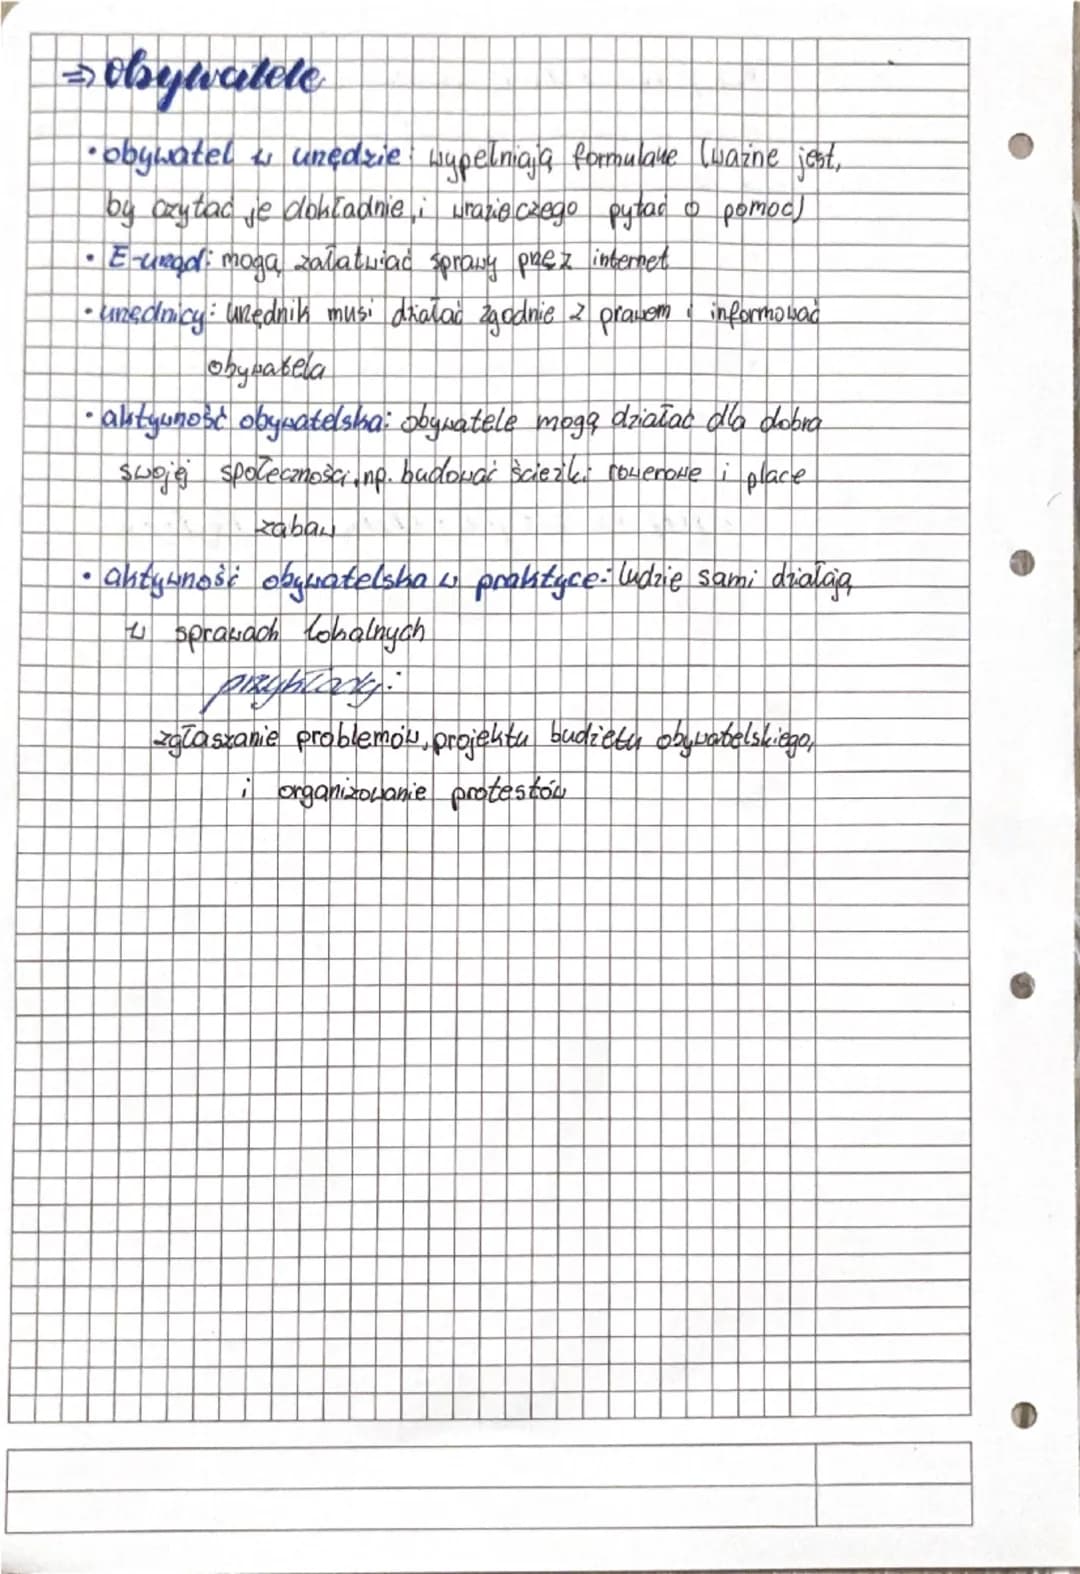 ⇒ obywatele
• obywatel w urzędzie: wypełniają formularze (ważne jest,
by czytać je dokładnie, i wrazie czego pytać o pomoc)
• E-urząd: mogą załatwiać sprawy przez internet
• urzędnicy: urzędnik musi działać zgodnie z prawem i informować
obywatela
• aktywność obywatelska: obywatele mogą działać dla dobra
swojej społeczności, np. budować ścieżki rowerowe i place
zabaw
• aktywność obywatelska w praktyce: ludzie sami działają
w sprawach lokalnych
przykłady:
zgłaszanie problemów, projektu budżetu obywatelskiego,
i organizowanie protestów